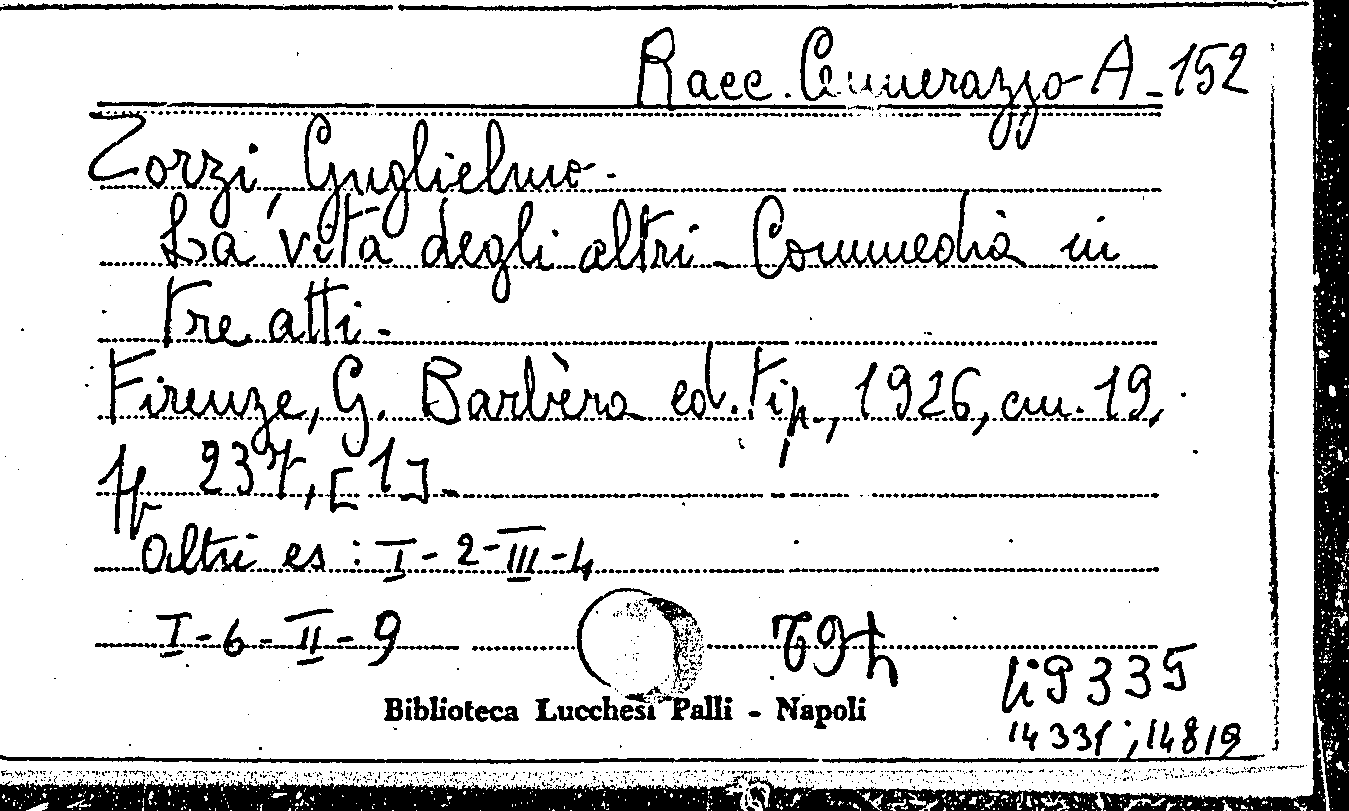 Racc. Cennerazzo A-152
Zorzi, Guglielmo.
La vita degli altri - Commedia in
tre atti.
Firenze, G. Barbèra ed. tip., 1926, cm. 19,
pp 237, [1].
Altri es: I-2-III-4
I-6-II-9
Biblioteca Lucchesi Palli - Napoli
14331; 14819